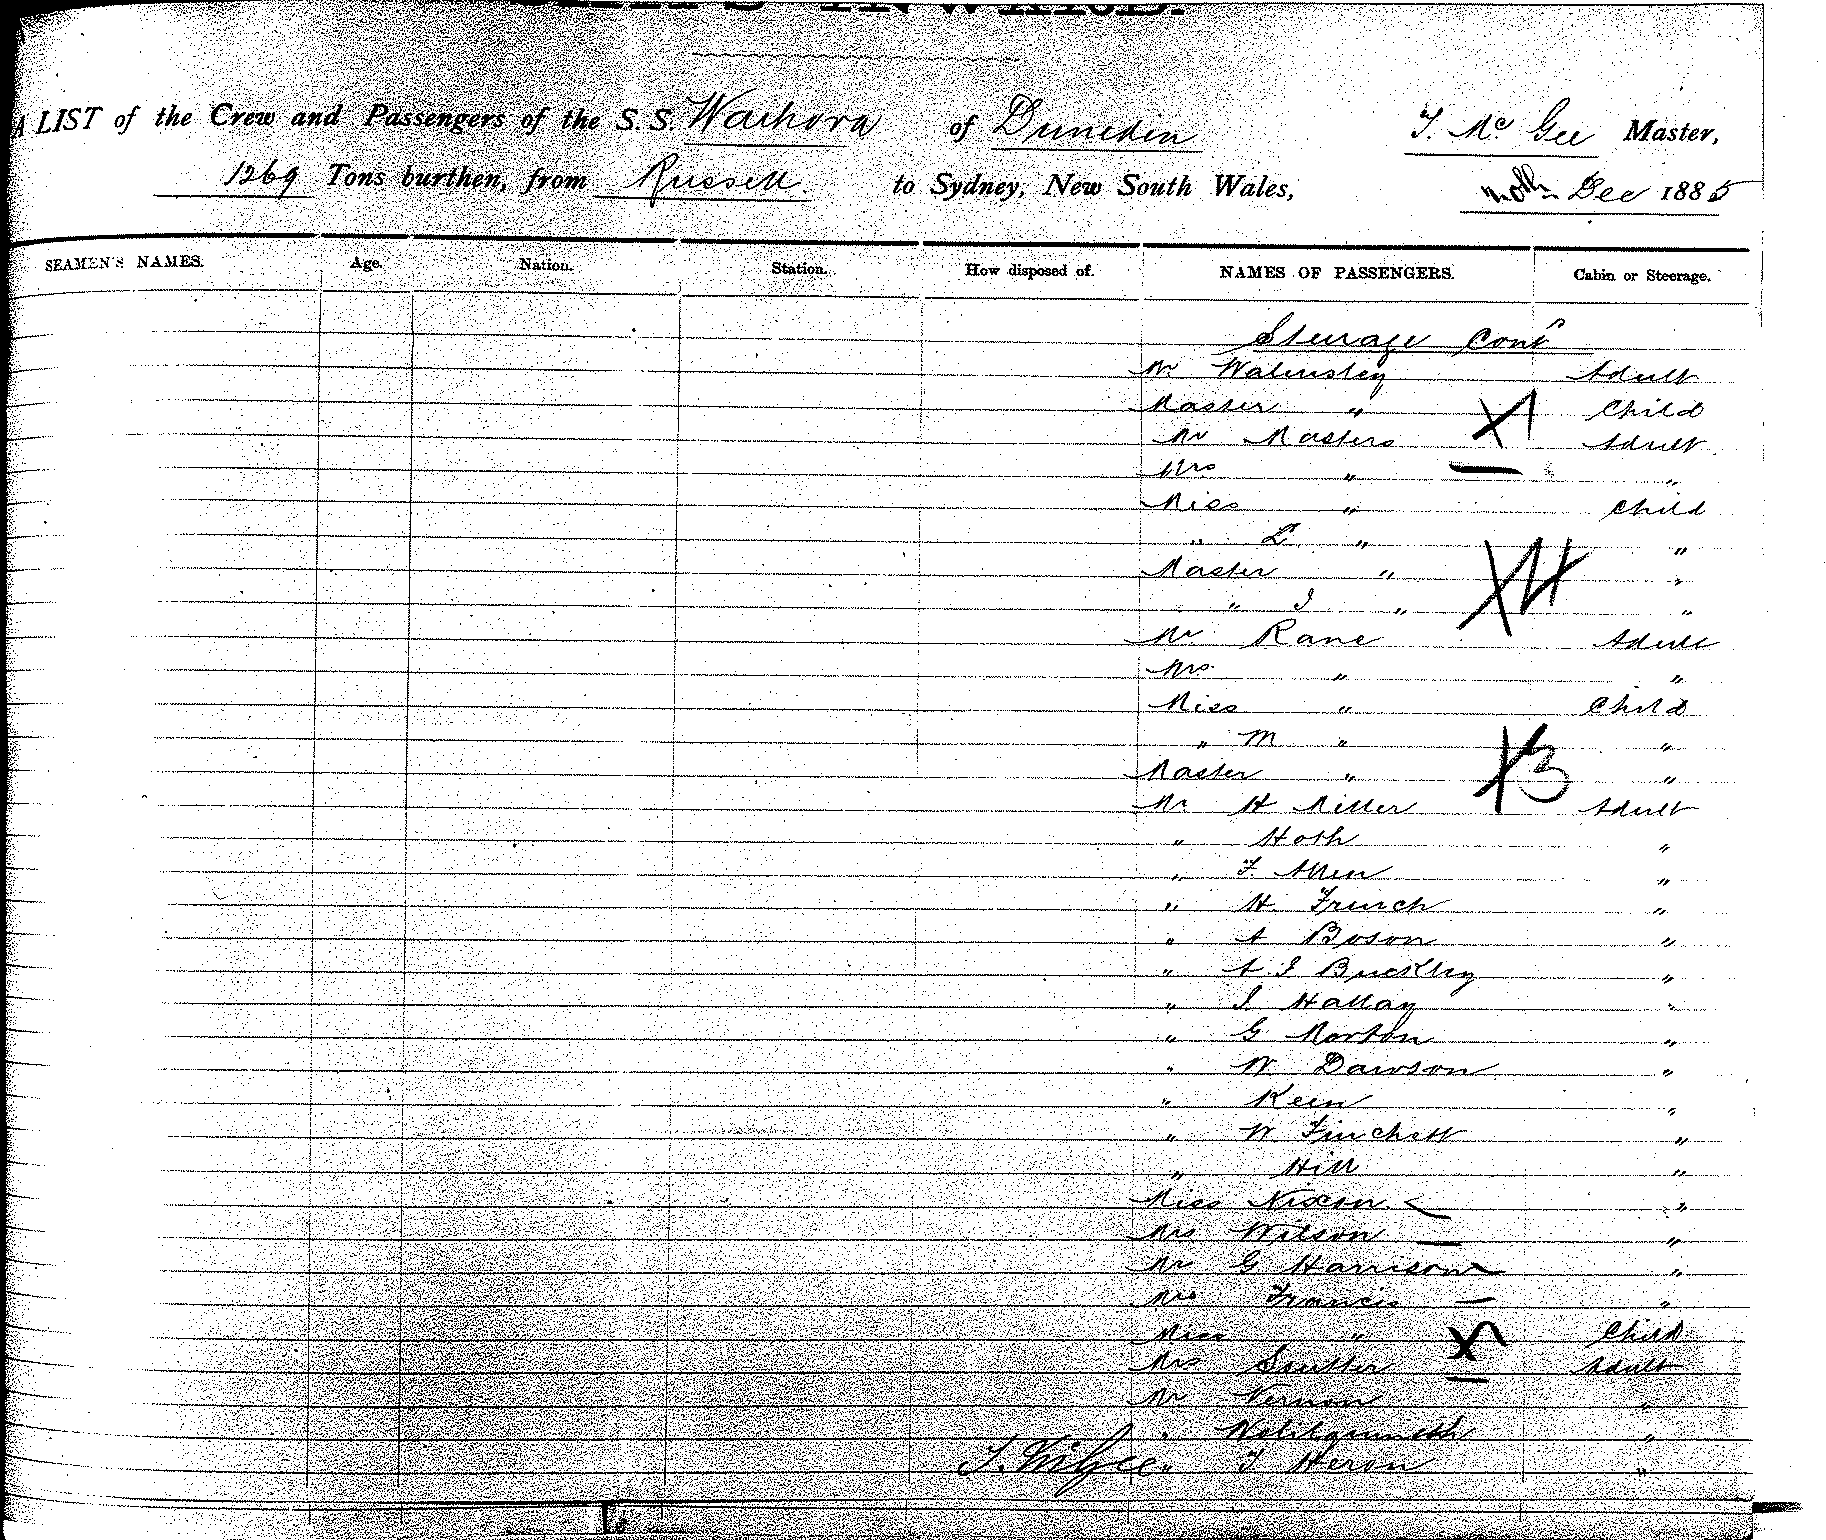 A LIST of the Crew and Passengers of the S.S. Waihora of Dunedin T. McGee Master,
1269 Tons burthen, from Russell to Sydney, New South Wales, Dec 1885
SEAMEN'S NAMES. Age. Nation. Station. How disposed of. NAMES OF PASSENGERS. Cabin or Steerage.
Steerage Cont
Mr Walmsley Adult
Master " X1 Child
Mr Masters Adult
Mrs " "
Miss " Child
" L " "
Master " X4 "
" J " "
Mr Rane Adult
Mrs " "
Miss " Child
" M " "
Master " X3 "
Mr H Miller Adult
" Hoth "
" F. Allen "
" H. French "
" A Boson "
" A J Buckley "
" J Hallay "
" G Morton "
" W Dawson "
" Keen "
" W Finchett "
" Hill "
Miss Nixon "
Mrs Wilson "
Mr G Harrison "
Mrs Francis "
Miss " X Child
Mrs Adult
Mr Vernon "
" "
T. McGee " T Heron "